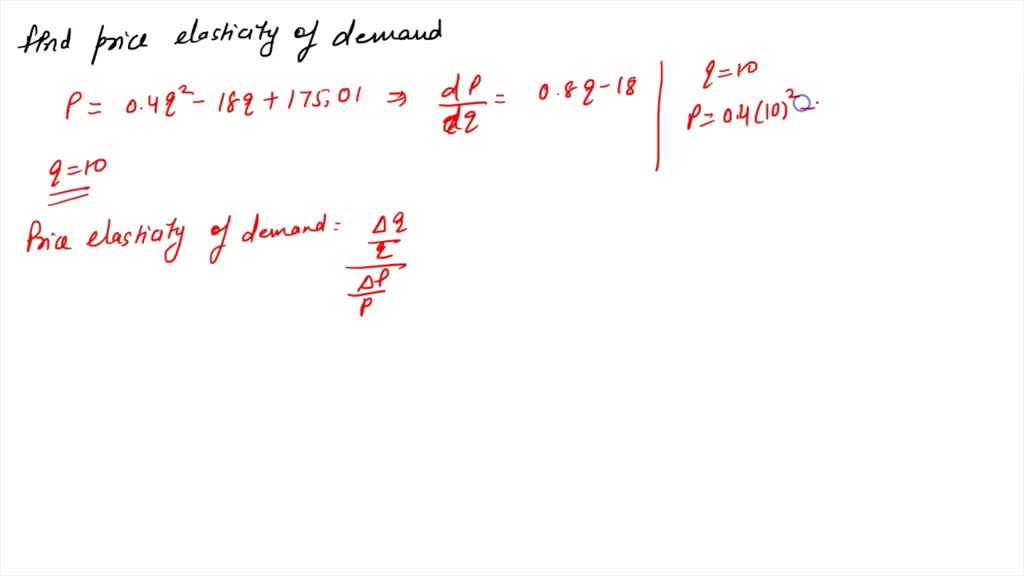 find price elasticity of demand
P = 0.4q² - 18q + 175.01 ⇒ dP/dq = 0.8q - 18
q = 10
Price elasticity of demand = (Δq/q)/(ΔP/P)
q = 10
P = 0.4(10)²